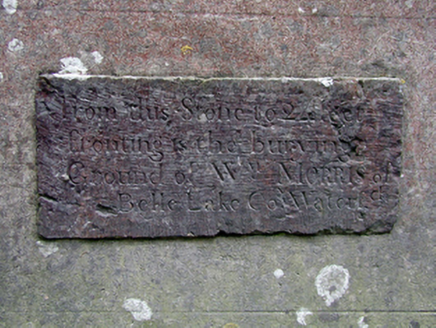 from this Stone to feet
fronting is the burying
Ground of Wm MORRIS of
Belle Lake Co Waterfd